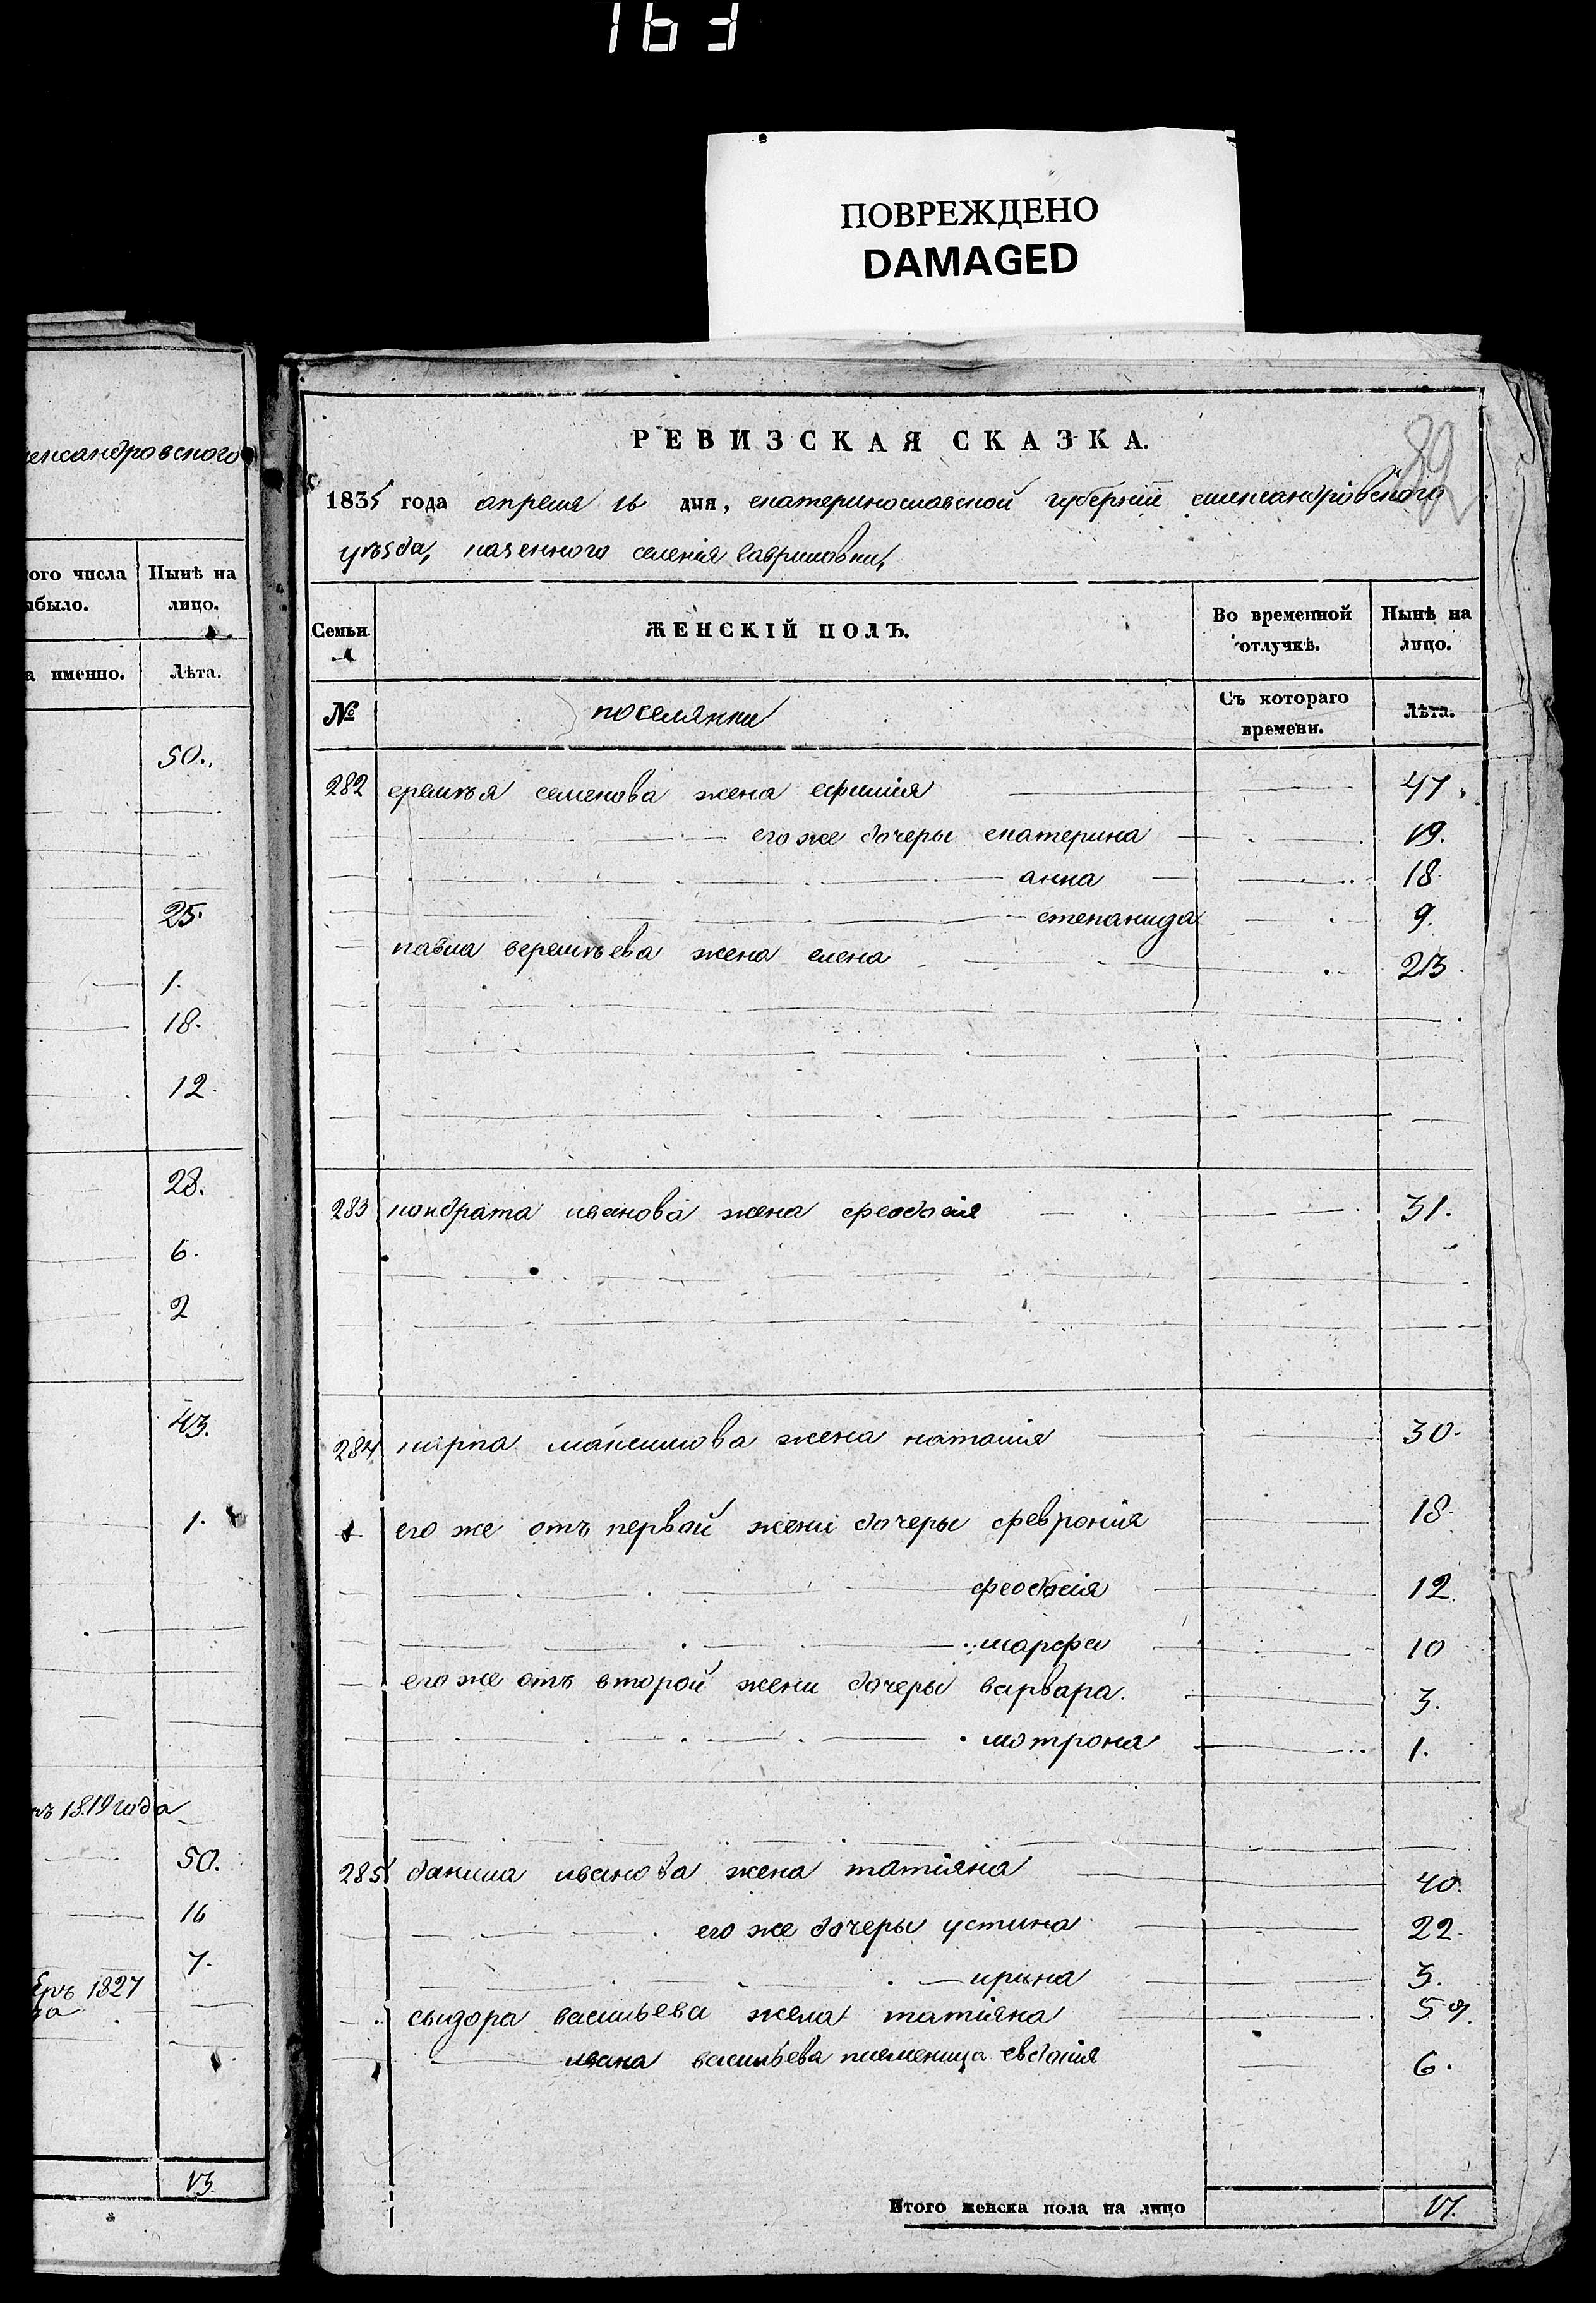 163
ПОВРЕЖДЕНО
DAMAGED
ександровского
ого числа
было.
Нынѣ на
лицо.
а именно.
Лѣта.
50.
25.
1.
18.
12.
28.
6.
2
43.
1.
1819 года
50.
16
7.
1827
13.
89
РЕВИЗСКАЯ СКАЗКА.
1835 года апреля 16 дня, екатеринославской губернии александровского
уѣзда, казенного селенія гавриловки,
Семьи
ЖЕНСКІЙ ПОЛЪ.
Во временной
отлучкѣ.
Нынѣ на
лицо.
№
поселянки
Съ котораго
времени.
Лѣта.
282 еремѣя семенова жена ефимія 47.
его же дочеры екатерина 19.
анна 18
степанида 9.
павла веремѣева жена елена 23.
283 кондрата иванова жена феодосія 31.
284 карпа максимова жена наталия 30.
его же отъ первой жени дочеры феврония 18.
феодосія 12.
марфа 10
его же отъ второй жени дочеры варвара. 3.
мотрона 1.
285 данила иванова жена татіяна 40.
его же дочеры устина 22.
ирина 3.
сыдора васильева жена татіяна 59.
ивана васильева племеница евдокія 6.
Итого женска пола на лицо 17.